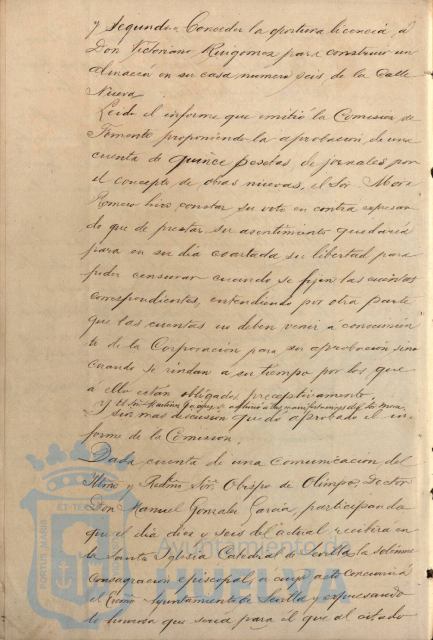 y Segundo: Conceder la oportuna licencia á
Don Victoriano Ruigomez para construir un
almacen en su casa numero seis de la Calle
Nueva.
Leido el informe que emitió la Comision de
Fomento proponiendo la aprobacion de una
cuenta de quince pesetas, de jornales por
el concepto de obras nuevas, el Sor. Mora
Romero hizo constar su voto en contra expresan
do que de prestar su asentimiento quedaria
para en su dia coartada su libertad para
poder censurar cuando se fijen las cuentas
correspondientes, entendiendo por otra parte
que las cuentas no deben venir a conocimien
to de la Corporacion para su aprobacion sino
cuando se rindan a su tiempo por los que
á ello están obligados preceptivamente.
y el Sor. Martinez se adhirió a las manifestaciones del Sr. Mora
sin mas discusion quedo aprobado el in-
forme de la Comision.
Dada cuenta de una Comunicacion del
Iltmo y Rvdmo Sor. Obispo de Olimpo, Doctor
Don Manuel Gonzalez Garcia, participando
que el dia diez y seis del actual recibirá en
la Santa Iglesia Catedral de Sevilla la solemne
Consagracion episcopal, a cuyo acto concurrirá
el Excmo Ayuntamiento de Sevilla y expresando
lo honroso que seria para el que al citado
PORTUS MARIS
ET TERRE
Ayuntamiento de
HUELVA